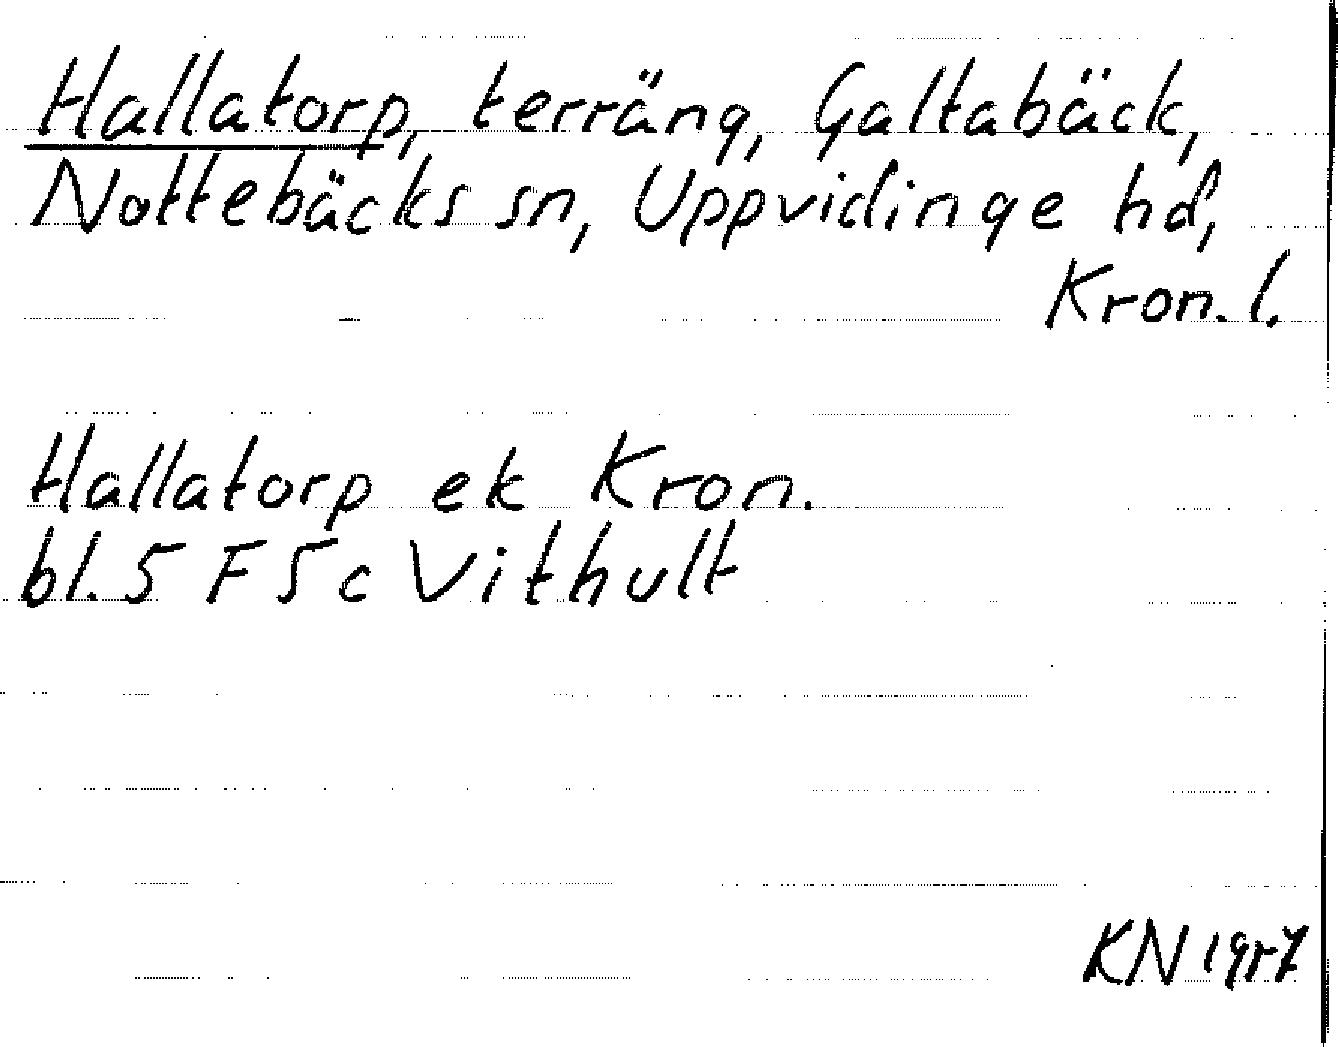 Hallatorp, terräng, Galtabäck,
Nottebäcks sn, Uppvidinge hd,
Kron. l.
Hallatorp ek Kron.
bl. 5 F 5 c Vithult
KN 1957